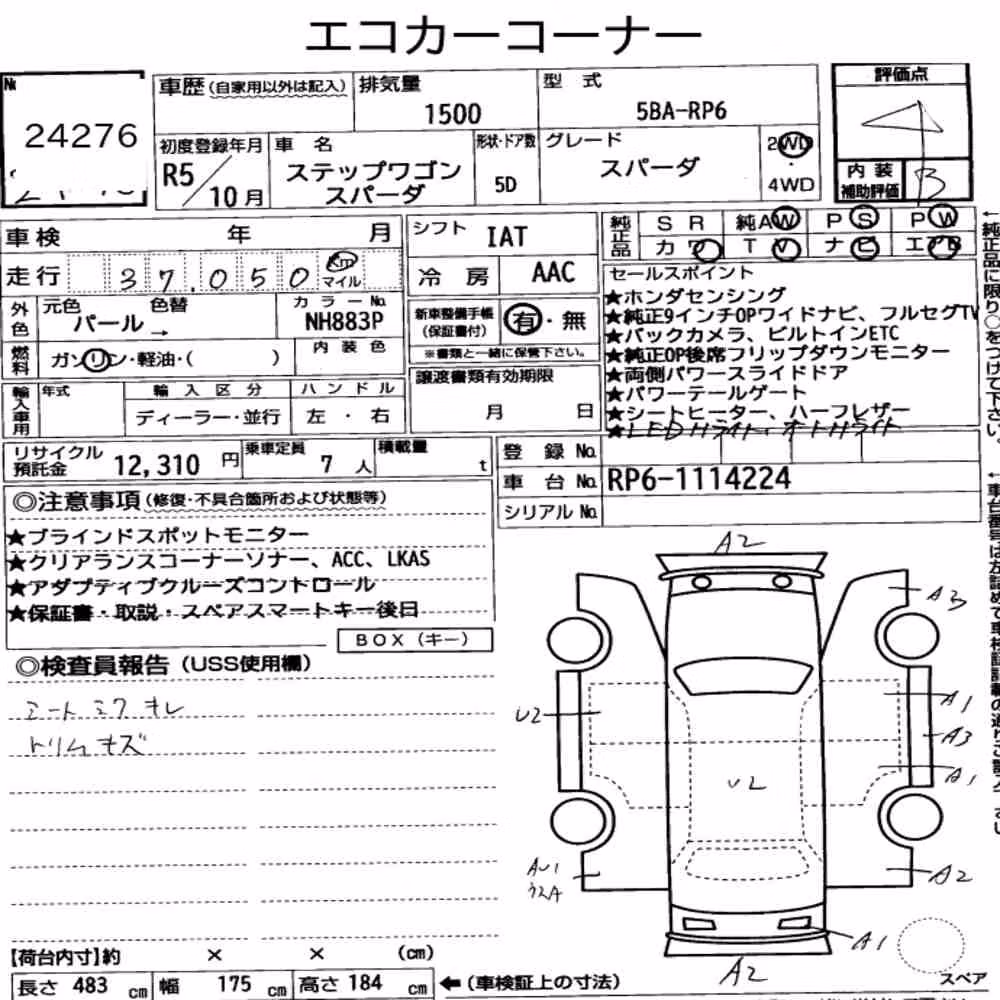 エコカーコーナー
№
24276
車歴 (自家用以外は記入)
排気量
1500
型 式
5BA-RP6
評価点
4
初度登録年月
R5/10月
車 名
ステップワゴン
スパーダ
形状・ドア数
5D
グレード
スパーダ
2WD
・
4WD
内装
補助評価
B
車検 年 月
走行 37,050 km
マイル
シフト IAT
冷房 AAC
純正品
SR 純AW PS PW
カワ TV ナビ エアB
外色
元色 色替
パール→
カラーNo.
NH883P
燃料
ガソリン・軽油・( )
内装色
新車整備手帳
(保証書付)
有・無
※書類と一緒に保管下さい。
セールスポイント
★ホンダセンシング
★純正9インチOPワイドナビ、フルセグTV
★バックカメラ、ビルトインETC
★純正OP後席フリップダウンモニター
★両側パワースライドドア
★パワーテールゲート
★シートヒーター、ハーフレザー
★LEDHライト・オートHライト
輸入車用
年式
輸入区分
ディーラー・並行
ハンドル
左・右
譲渡書類有効期限
月 日
リサイクル
預託金
12,310 円
乗車定員
7 人
積載量
t
登録No.
車台No. RP6-1114224
シリアルNo.
◎注意事項 (修復・不具合箇所および状態等)
★ブラインドスポットモニター
★クリアランスコーナーソナー、ACC、LKAS
★アダプティブクルーズコントロール
★保証書・取説・スペアスマートキー後日
BOX (キー)
◎検査員報告 (USS使用欄)
シートミクキレ
トリムキズ
A2
A3
U2
A1
A3
A1
U2
AU1
A2
A1
A2
スペア
【荷台内寸】約 × × (cm)
長さ 483 cm 幅 175 cm 高さ 184 cm
←(車検証上の寸法)
←純正品に限り○をつけて下さい。